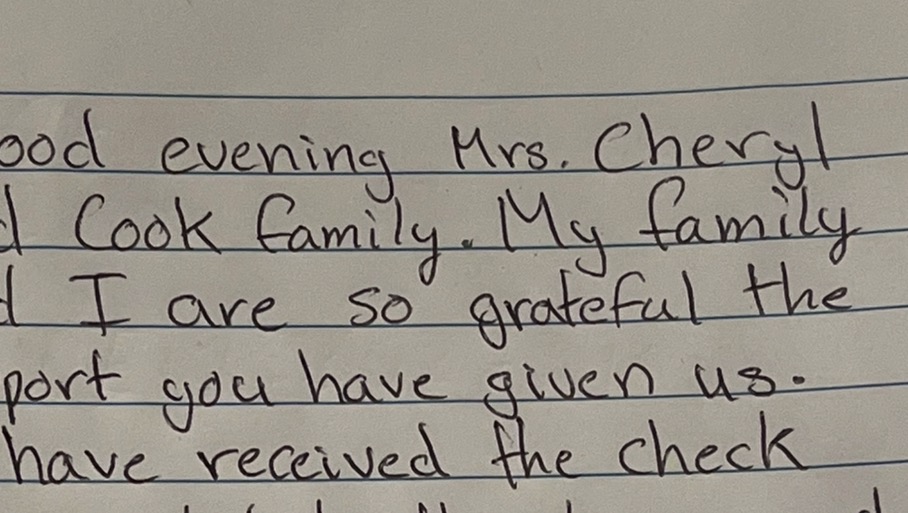 ood evening Mrs. Cheryl
d Cook family. My family
d I are so grateful the
port you have given us.
have received the check